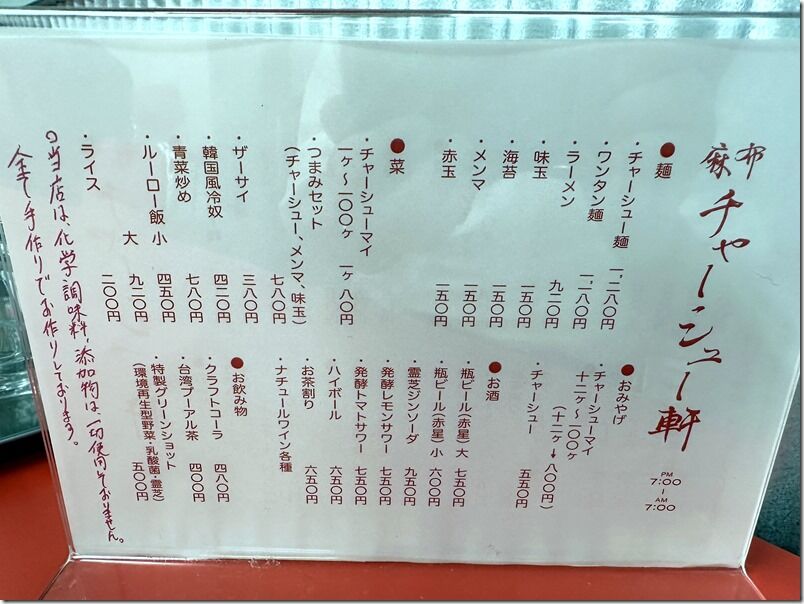 麻布 チャーシュー軒
PM 7:00 - AM 7:00
●麺
・チャーシュー麺 一、二八〇円
・ワンタン麺 一、二八〇円
・ラーメン 九二〇円
・味玉 一五〇円
・海苔 一五〇円
・メンマ 一五〇円
・赤玉 一五〇円
●菜
・チャーシューマイ
一ヶ〜一〇〇ヶ 一ヶ 八〇円
・つまみセット
(チャーシュー、メンマ、味玉)
七八〇円
・ザーサイ 三八〇円
・韓国風冷奴 四二〇円
・青菜炒め 七八〇円
・ルーロー飯 小 四五〇円
大 九二〇円
・ライス 二〇〇円
●おみやげ
・チャーシューマイ
十二ヶ〜一〇〇ヶ
(十二ヶ→八〇〇円)
・チャーシュー 五五〇円
●お酒
・瓶ビール(赤星)大 七五〇円
・瓶ビール(赤星)小 六〇〇円
・霊芝ジンソーダ 九五〇円
・発酵レモンサワー 七五〇円
・発酵トマトサワー 七五〇円
・ハイボール 六五〇円
・お茶割り 六五〇円
・ナチュールワイン各種
●お飲み物
・クラフトコーラ 四八〇円
・台湾プーアル茶 四〇〇円
・特製グリーンショット
(環境再生型野菜・乳酸菌・霊芝)
五〇〇円
◎当店は、化学調味料、添加物は、一切使用しておりません。
全て手作りでお作りしております。